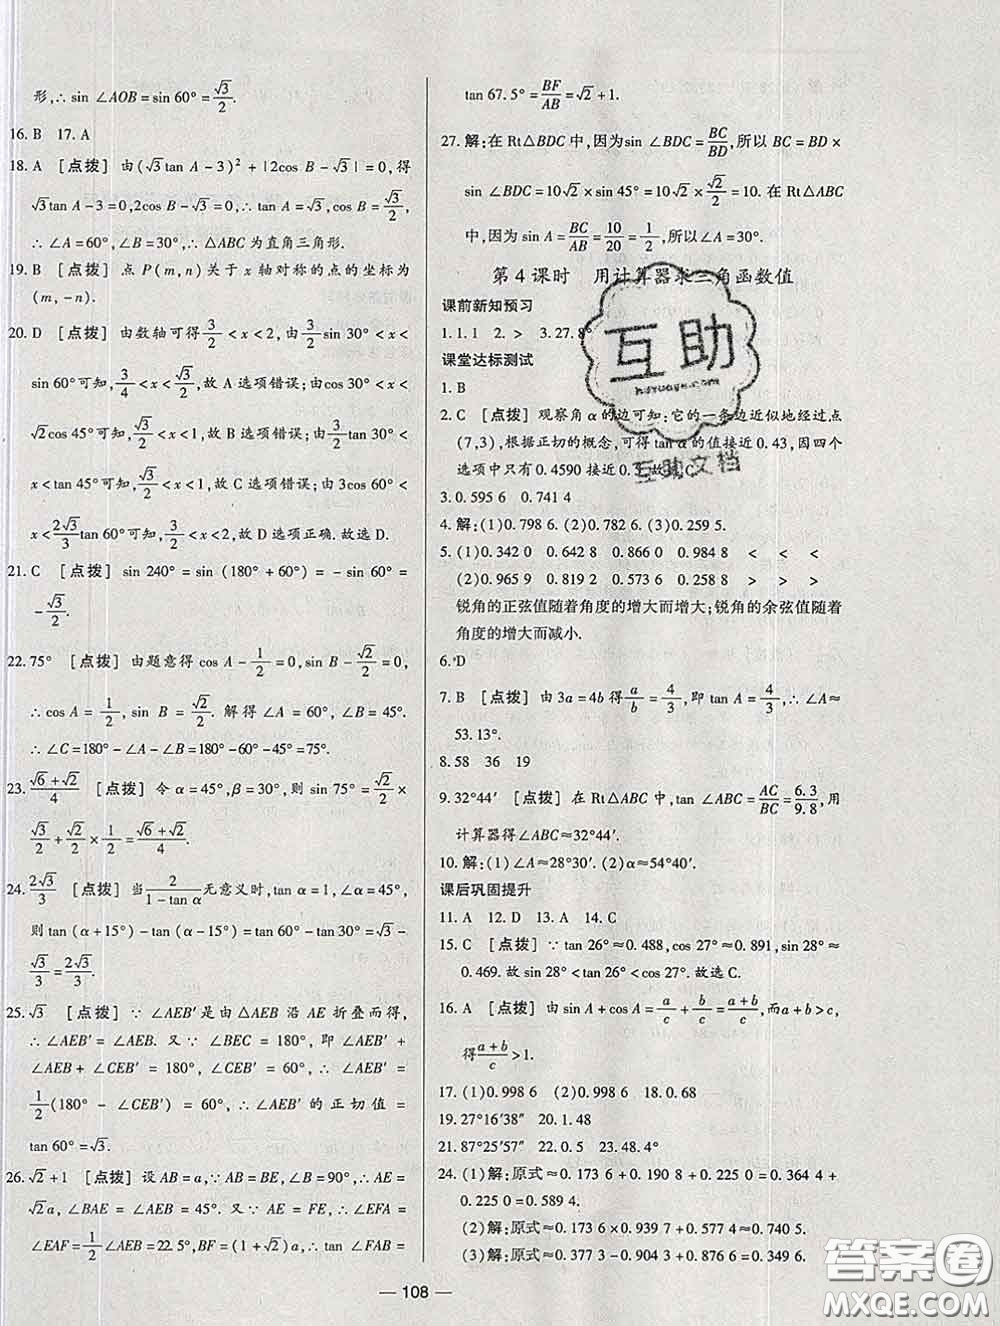 形,∴sin ∠AOB=sin 60°=√3/2.
16. B　17. A
18. A　[点拨] 由(√3tan A-3)²+|2cos B-√3|=0,得
√3tan A-3=0,2cos B-√3=0,∴tan A=√3,cos B=√3/2,
∴∠A=60°,∠B=30°,∴△ABC为直角三角形.
19. B　[点拨] 点P(m,n)关于x轴对称的点的坐标为
(m,-n).
20. D　[点拨] 由数轴可得3/2<x<2,由sin 30°<x<
sin 60°可知,3/4<x<√3/2,故A选项错误;由cos 30°<x<
√2cos 45°可知,√3/2<x<1,故B选项错误;由3/2tan 30°<
x<tan 45°可知,√3/2<x<1,故C选项错误;由3cos 60°<
x<2√3/3tan 60°可知,3/2<x<2,故D选项正确.故选D.
21. C　[点拨] sin 240°=sin (180°+60°)=-sin 60°=
-√3/2.
22. 75°　[点拨] 由题意得cos A-1/2=0,sin B-√2/2=0,
∴cos A=1/2,sin B=√2/2. 解得∠A=60°,∠B=45°.
∴∠C=180°-∠A-∠B=180°-60°-45°=75°.
23. (√6+√2)/4　[点拨] 令α=45°,β=30°,则sin 75°=√2/2×
√3/2+√2/2×1/2=(√6+√2)/4.
24. 2√3/3　[点拨] 当2/(1-tan α)无意义时,tan α=1,∠α=45°,
则tan (α+15°)-tan (α-15°)=tan 60°-tan 30°=√3-
√3/3=2√3/3.
25. √3　[点拨] ∵∠AEB′是由△AEB沿AE折叠而得,
∴∠AEB′=∠AEB. 又∵∠BEC=180°,即∠AEB′+
∠AEB+∠CEB′=180°,∠CEB′=60°,∴∠AEB′=
1/2(180°-∠CEB′)=60°,∴∠AEB′的正切值=
tan 60°=√3.
26. √2+1　[点拨] 设AB=a,∵AB=BE,∠B=90°,∴AE=
√2a,∠BAE=∠AEB=45°. 又∵AE=FE,∴∠EFA=
∠EAF=1/2∠AEB=22.5°,BF=(1+√2)a,∴tan ∠FAB=
tan 67.5°=BF/AB=√2+1.
27. 解:在Rt△BDC中,因为sin ∠BDC=BC/BD,所以BC=BD×
sin ∠BDC=10√2×sin 45°=10√2×√2/2=10. 在Rt△ABC
中,因为sin A=BC/AB=10/20=1/2,所以∠A=30°.
第4课时　用计算器求三角函数值
课前新知预习
1. 1.1　2. >　3. 27.8°
课堂达标测试
1. B
2. C　[点拨] 观察角α的边可知:它的一条边近似地经过点
(7,3),根据正切的概念,可得tan α的值接近0.43,因四个
选项中只有0.4590接近0.
3. 0.595 6　0.741 4
4. 解:(1)0.798 6. (2)0.763 5. (3)0.259 5.
5. (1)0.342 0　0.642 8　0.866 0　0.984 8　<　<　<
(2)0.965 9　0.819 2　0.573 6　0.258 8　>　>　>
锐角的正弦值随着角度的增大而增大;锐角的余弦值随着
角度的增大而减小.
6. D
7. B　[点拨] 由3a=4b得a/b=4/3,即tan A=4/3,∴∠A≈
53.13°.
8. 58　36　19
9. 32°44′　[点拨] 在Rt△ABC中,tan ∠ABC=AC/BC=6.3/9.8,用
计算器得∠ABC≈32°44′.
10. 解:(1)∠A≈28°30′. (2)α≈54°40′.
课后巩固提升
11. A　12. D　13. A　14. C
15. C　[点拨] ∵tan 26°≈0.488,cos 27°≈0.891,sin 28°≈
0.469. 故sin 28°<tan 26°<cos 27°. 故选C.
16. A　[点拨] 由sin A+cos A=a/c+b/c=(a+b)/c,而a+b>c,
得(a+b)/c>1.
17. (1)0.998 6　(2)0.998 6　18. 0.68
19. 27°16′38″　20. 1.48
21. 87°25′57″　22. 0.5　23. 48.4°
24. (1)解:原式≈0.173 6+0.190 8+0.225 0=0.364 4+
0.225 0=0.589 4.
(2)解:原式≈0.173 6×0.939 7+0.984 8×0.342 0
(3)解:原式≈0.377 3-0.904 3+0.876 6=0.349 6.
— 108 —
互助
hdzuoye.com
互助文档
答案圈
MXQE.COM